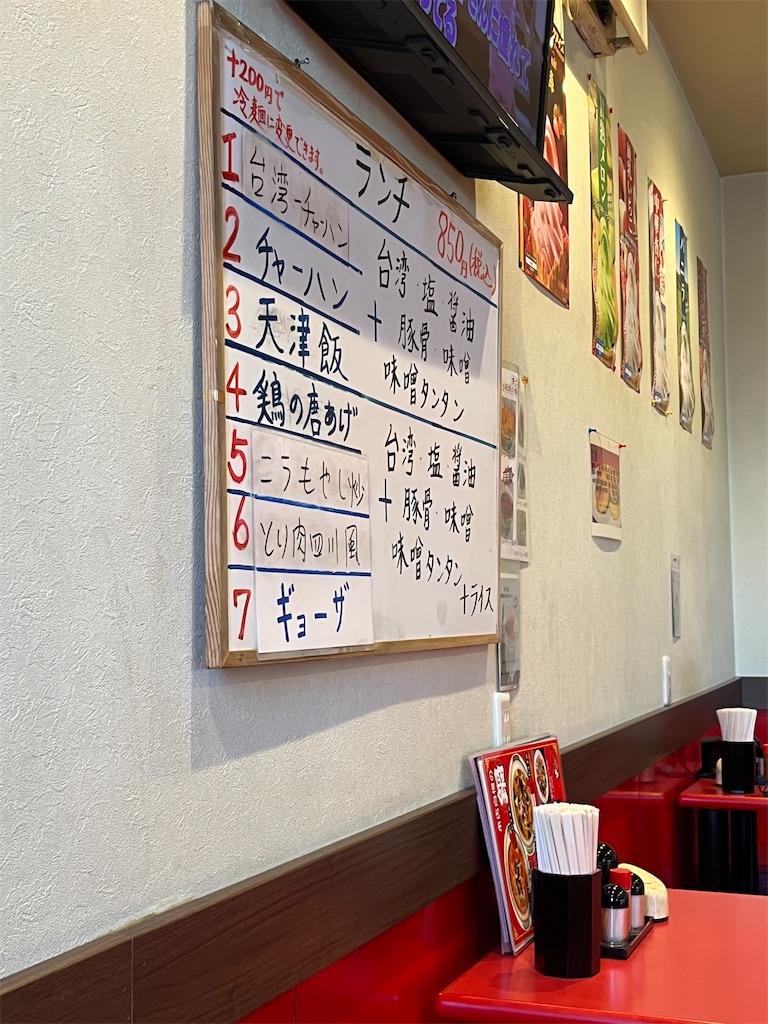 +200円で
冷麺に変更できます。
ランチ
850円(税込)
1 台湾チャーハン
2 チャーハン
3 天津飯
4 鶏の唐あげ
台湾・塩・醤油
+ 豚骨・味噌
味噌タンタン
5 こうもやし炒
6 とり肉四川風
7 ギョーザ
台湾・塩・醤油
+ 豚骨・味噌
味噌タンタン
+ライス